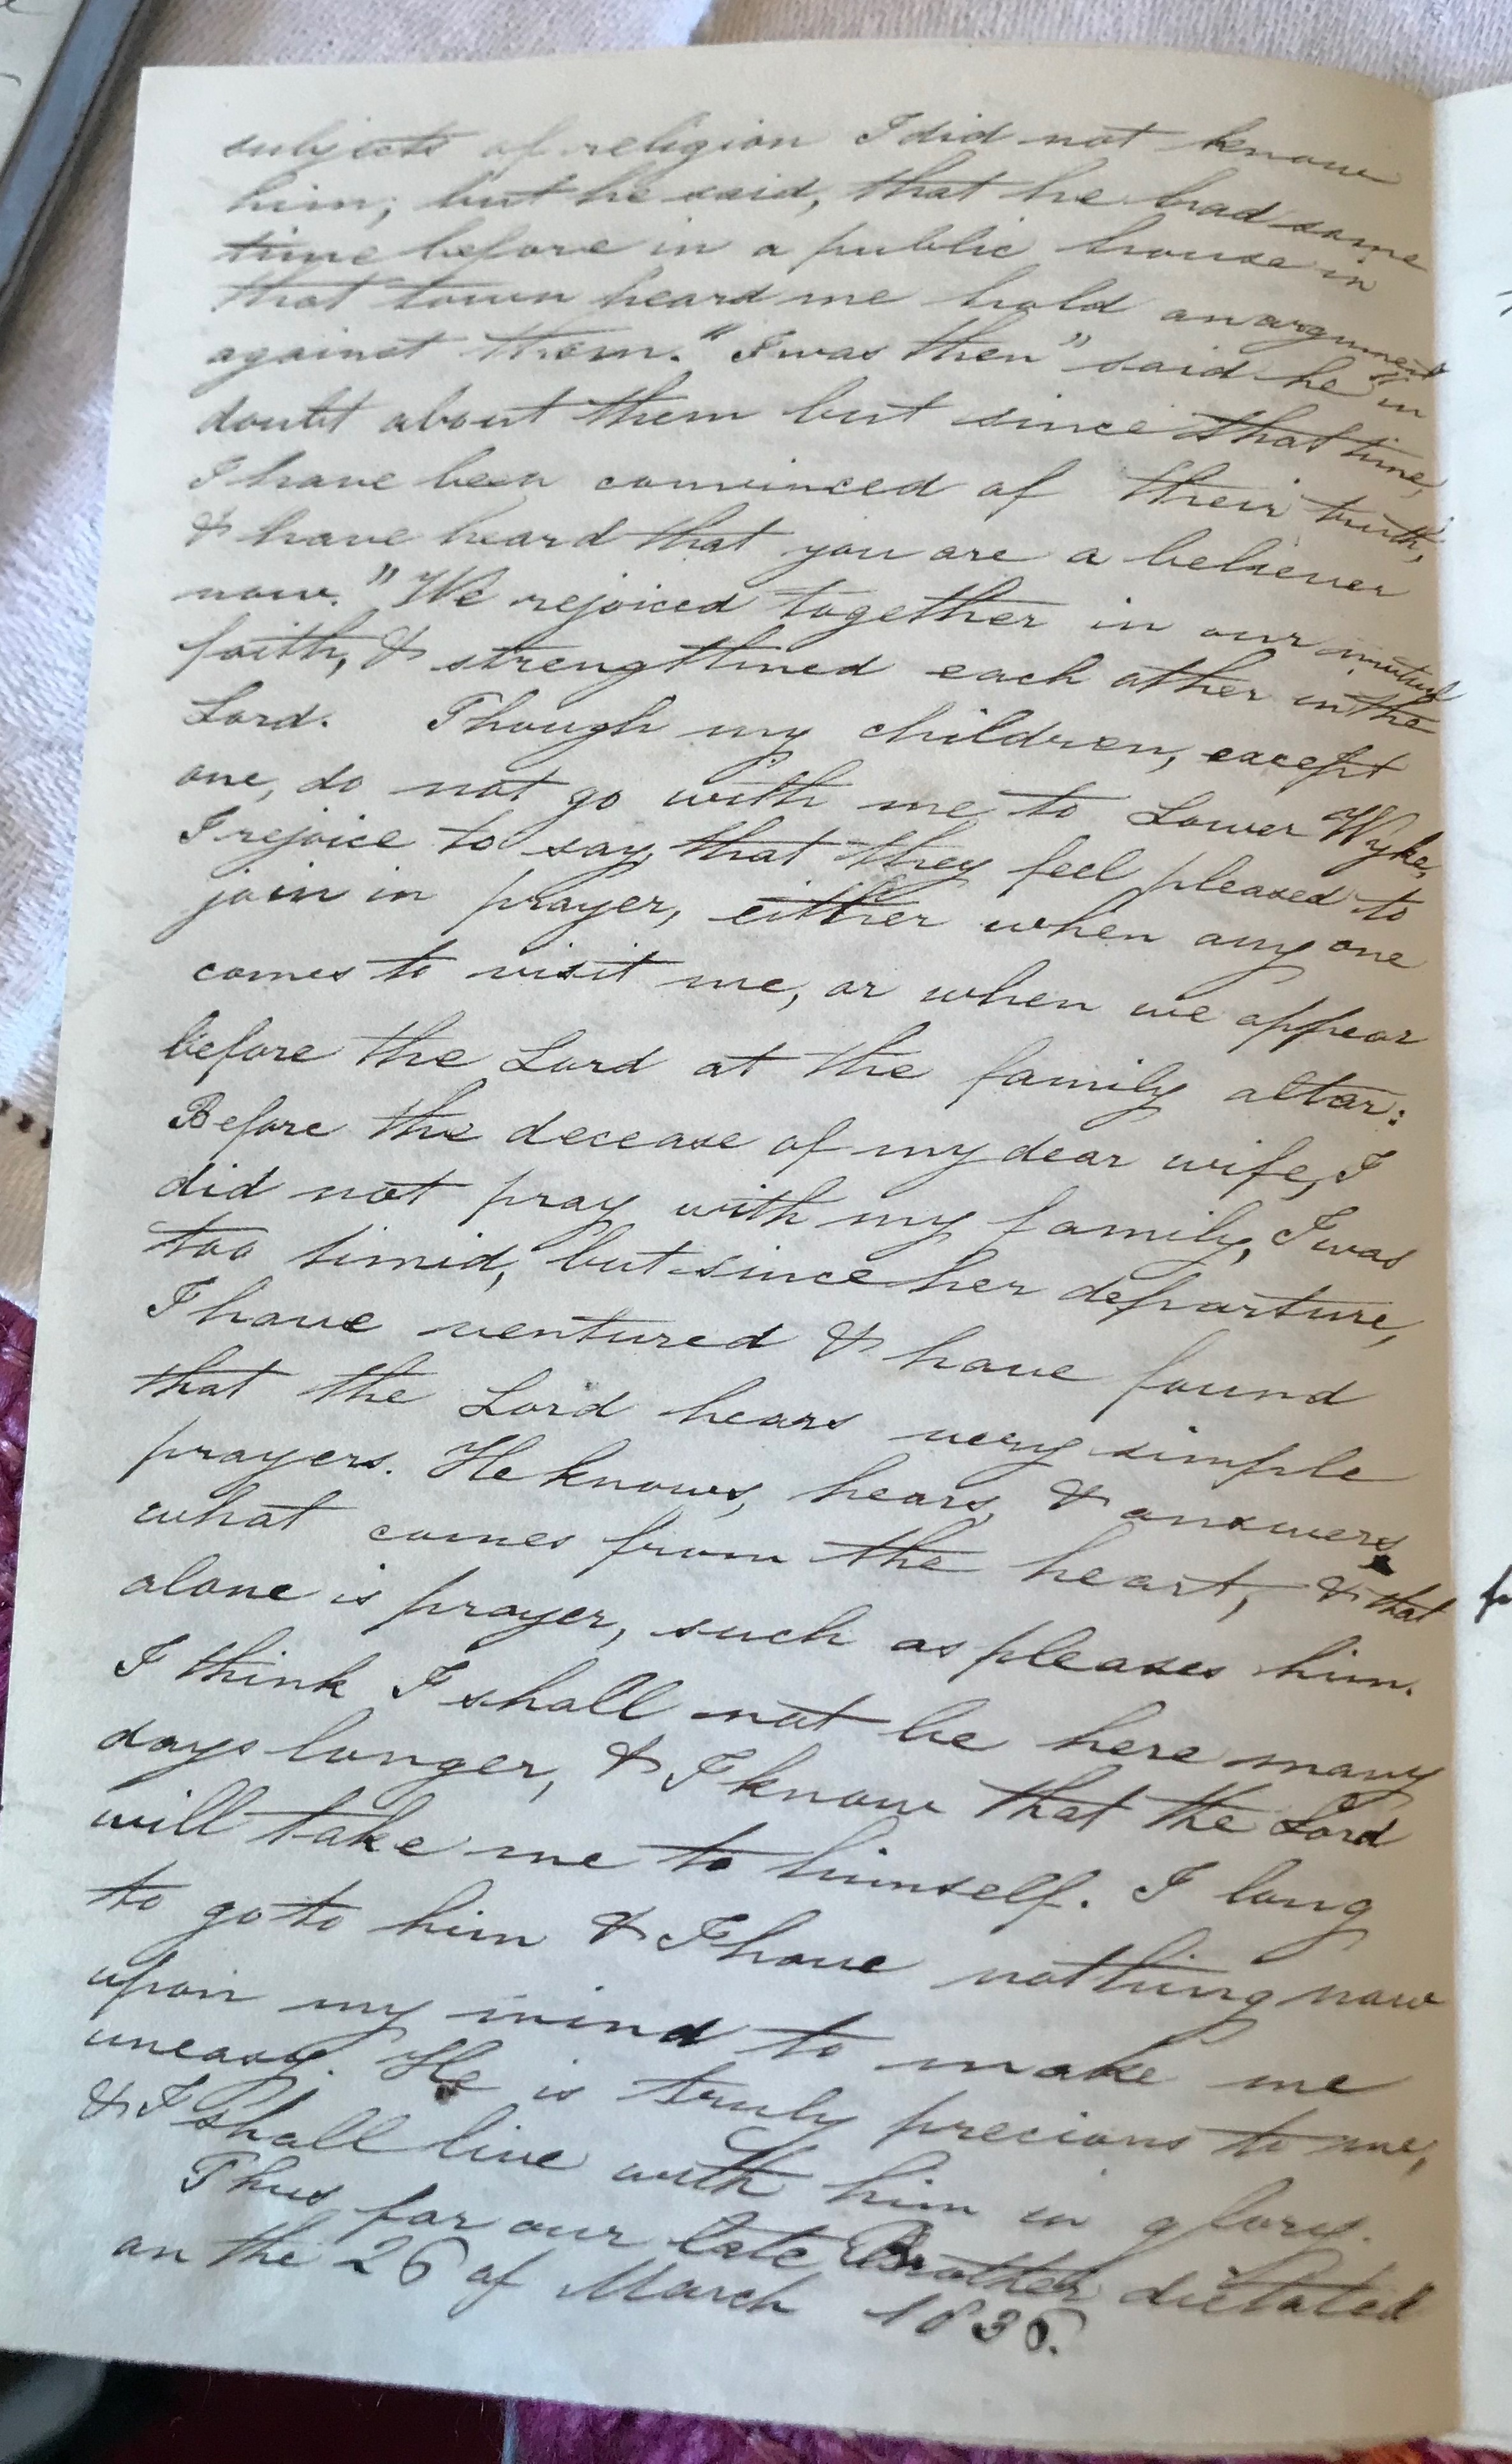 subjects of religion I did not know
him; but he said, that he had some
time before in a public house in
that town heard me hold an argument
against them. "I was then" said he "in
doubt about them but since that time,
I have been convinced of their truth,
& have heard that you are a believer
now." We rejoiced together in our mutual
faith, & strengthined each other in the
Lord. Though my children, except
one, do not go with me to Lower Wyke,
I rejoice to say, that they feel pleased to
join in prayer, either when any one
comes to visit me, or when we appear
before the Lord at the family altar:
Before the decease of my dear wife, I
did not pray with my family, I was
too timid, but since her departure,
I have ventured & have found
that the Lord hears very simple
prayers. He knows, hears, & answers
what comes from the heart, & that
alone is prayer, such as pleases him.
I think I shall not be here many
days longer, & I know that the Lord
will take me to himself. I long
to go to him & I have nothing now
upon my mind to make me
uneasy. He is truly precious to me,
& I shall live with him in glory.
Thus far our late Brother dictated
on the 26 of March 1836.